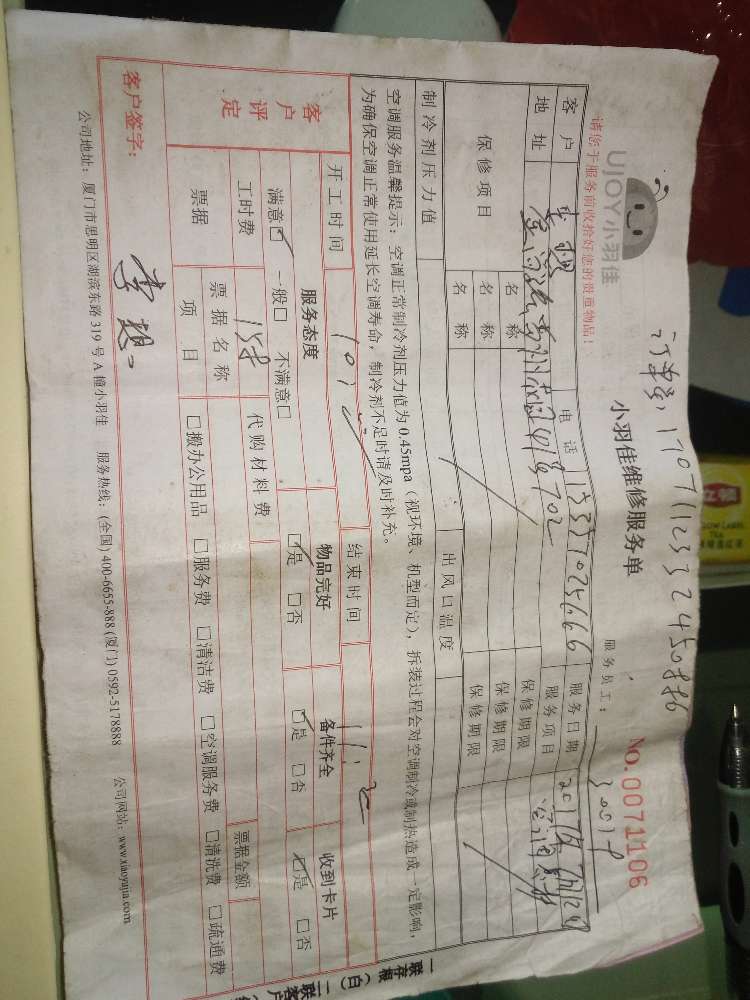 订单号:1707112332450886
UJOY小羽佳
小羽佳维修服务单
NO.0071106
请您于服务前收拾好您的贵重物品!
服务员工:
客户 李想 电话 服务日期
地址 702 服务项目
保修项目 名称 保修期限
名称 保修期限
名称 保修期限
制冷剂压力值 出风口温度
空调服务温馨提示:空调正常制冷剂压力值为0.45mpa(视环境、机型而定),拆装过程会对空调制冷或制热造成一定影响,
为确保空调正常使用延长空调寿命,制冷剂不足时请及时补充。
开工时间 结束时间
客户评定 服务态度 物品完好 备件齐全 收到卡片
满意☑ 一般□ 不满意□ ☑是 □否 ☑是 □否 ☑是 □否
工时费 158 代购材料费
票据 票据名称 票据金额
项目 □搬办公用品 □服务费 □清洁费 □空调服务费 □清洗费 □疏通费
客户签字: 李想
公司地址:厦门市思明区湖滨东路319号A幢小羽佳 服务热线:(全国)400-6655-888(厦门)0592-5178888 公司网站:www.xiaoyujia.com
一联存根(白)二联客户